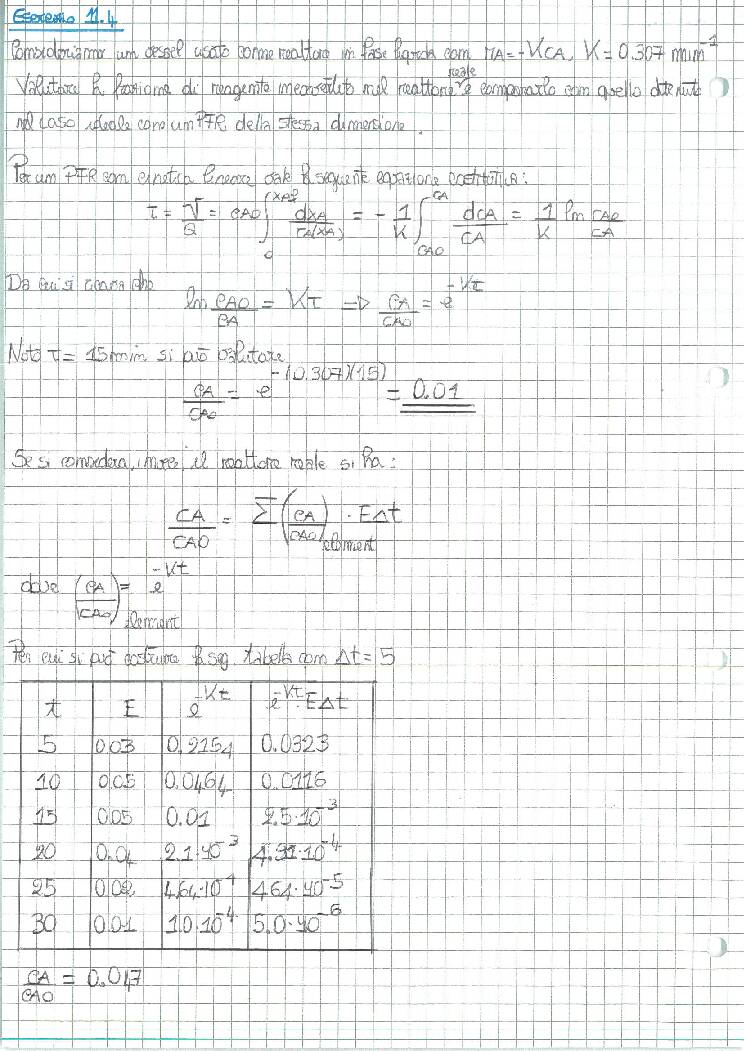 Esercizio 11.4
Consideriamo un vessel usato come reattore in fase liquida con rA=-KCA, K=0.307 min⁻¹
Valutare la frazione di reagente inconvertito nel reattore reale e compararlo con quello ottenuto
nel caso ideale con un PFR della stessa dimensione.
Per un PFR con cinetica lineare vale la seguente equazione costitutiva:
τ = V/Q = CA0 ∫₀^XAf dXA/rA(XA) = - 1/K ∫_CA0^CA dCA/CA = 1/K ln CA0/CA
Da cui si ricava che
ln CA0/CA = Kτ => CA/CA0 = e^-Kτ
Noto τ = 15min si può valutare
CA/CA0 = e^-(0.307)(15) = 0.01
Se si considera, invece, il reattore reale si ha:
CA/CA0 = Σ (CA/CA0)element · EΔt
dove (CA/CA0)element = e^-Kt
Per cui si può costruire la seg. tabella con Δt = 5
t E e^-Kt e^-Kt·EΔt
5 0.03 0.2154 0.0323
10 0.05 0.0464 0.0116
15 0.05 0.01 2.5·10⁻³
20 0.04 2.1·10⁻³ 4.31·10⁻⁴
25 0.02 4.64·10⁻⁴ 4.64·10⁻⁵
30 0.01 1.0·10⁻⁴ 5.0·10⁻⁶
CA/CA0 = 0.047